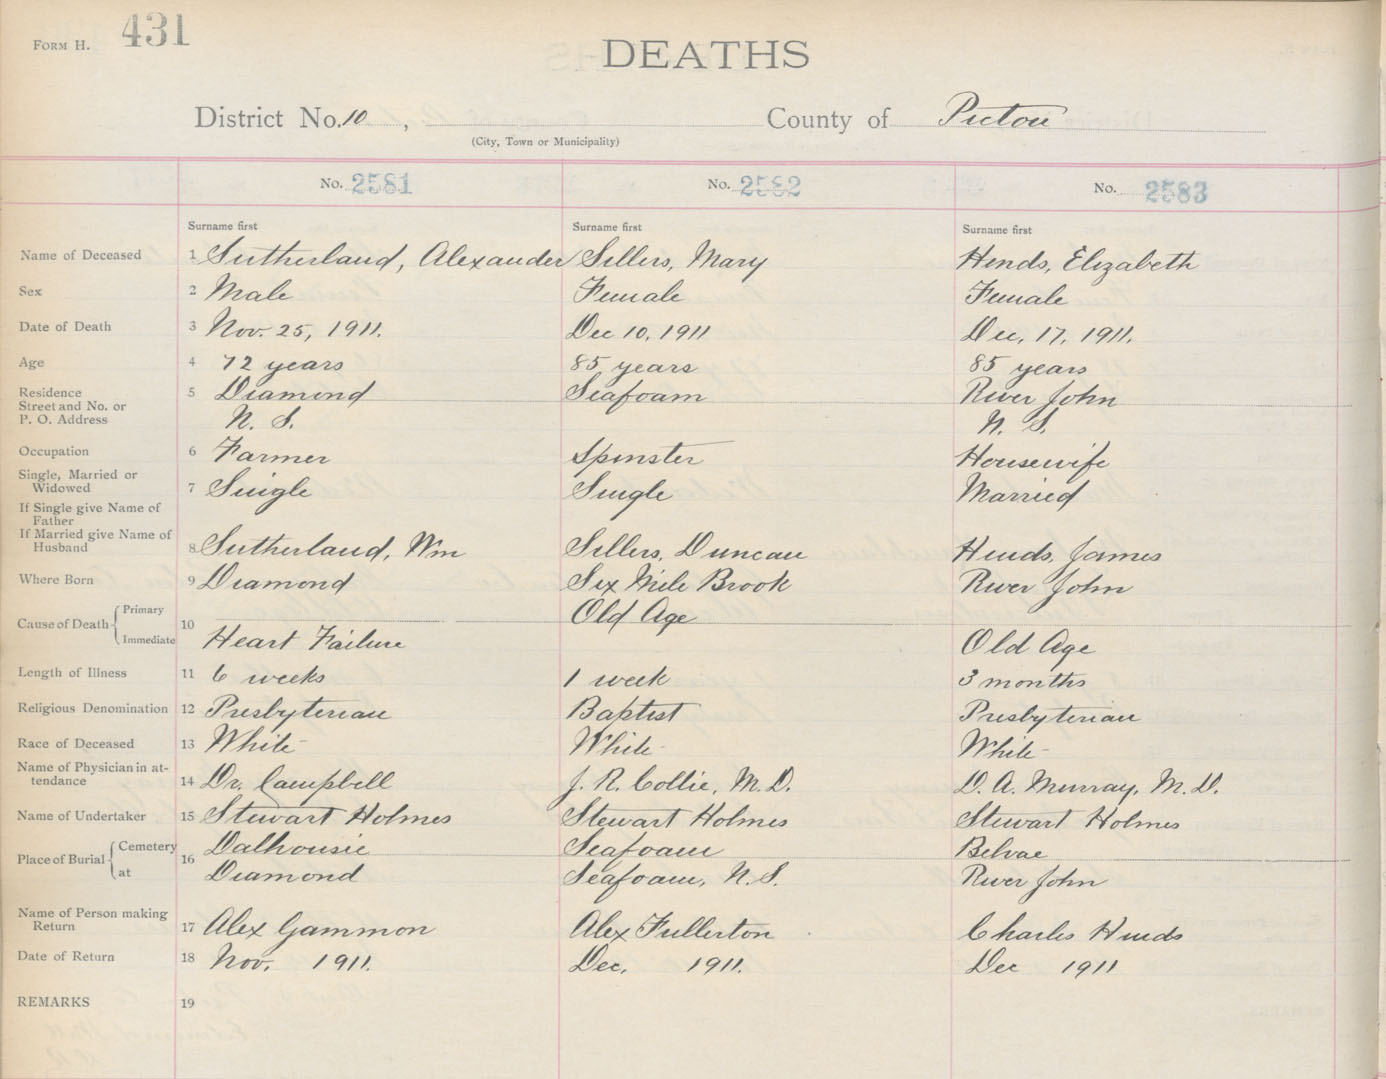 FORM H. 431
DEATHS
District No. 10, County of Pictou
(City, Town or Municipality)
No. 2581 No. 2582 No. 2583
Surname first Surname first Surname first
Name of Deceased 1 Sutherland, Alexander Sillers, Mary Hinds, Elizabeth
Sex 2 Male Female Female
Date of Death 3 Nov. 25, 1911. Dec 10, 1911 Dec. 17, 1911.
Age 4 72 years 85 years 85 years
Residence 5 Diamond Seafoam River John
Street and No. or
P. O. Address N. S. N. S.
Occupation 6 Farmer Spinster Housewife
Single, Married or
Widowed 7 Single Single Married
If Single give Name of
Father
If Married give Name of
Husband 8 Sutherland, Wm Sillers, Duncan Hinds, James
Where Born 9 Diamond Six Mile Brook River John
Cause of Death Primary 10 Old Age
Immediate Heart Failure Old Age
Length of Illness 11 6 weeks 1 week 3 months
Religious Denomination 12 Presbyterian Baptist Presbyterian
Race of Deceased 13 White White White
Name of Physician in at-
tendance 14 Dr. Campbell J. R. Collie, M.D. D. A. Murray, M.D.
Name of Undertaker 15 Stewart Holmes Stewart Holmes Stewart Holmes
Place of Burial Cemetery 16 Dalhousie Seafoam Belvae
at Diamond Seafoam, N.S. River John
Name of Person making
Return 17 Alex Gammon Alex Fullerton Charles Hinds
Date of Return 18 Nov. 1911. Dec. 1911. Dec 1911
REMARKS 19